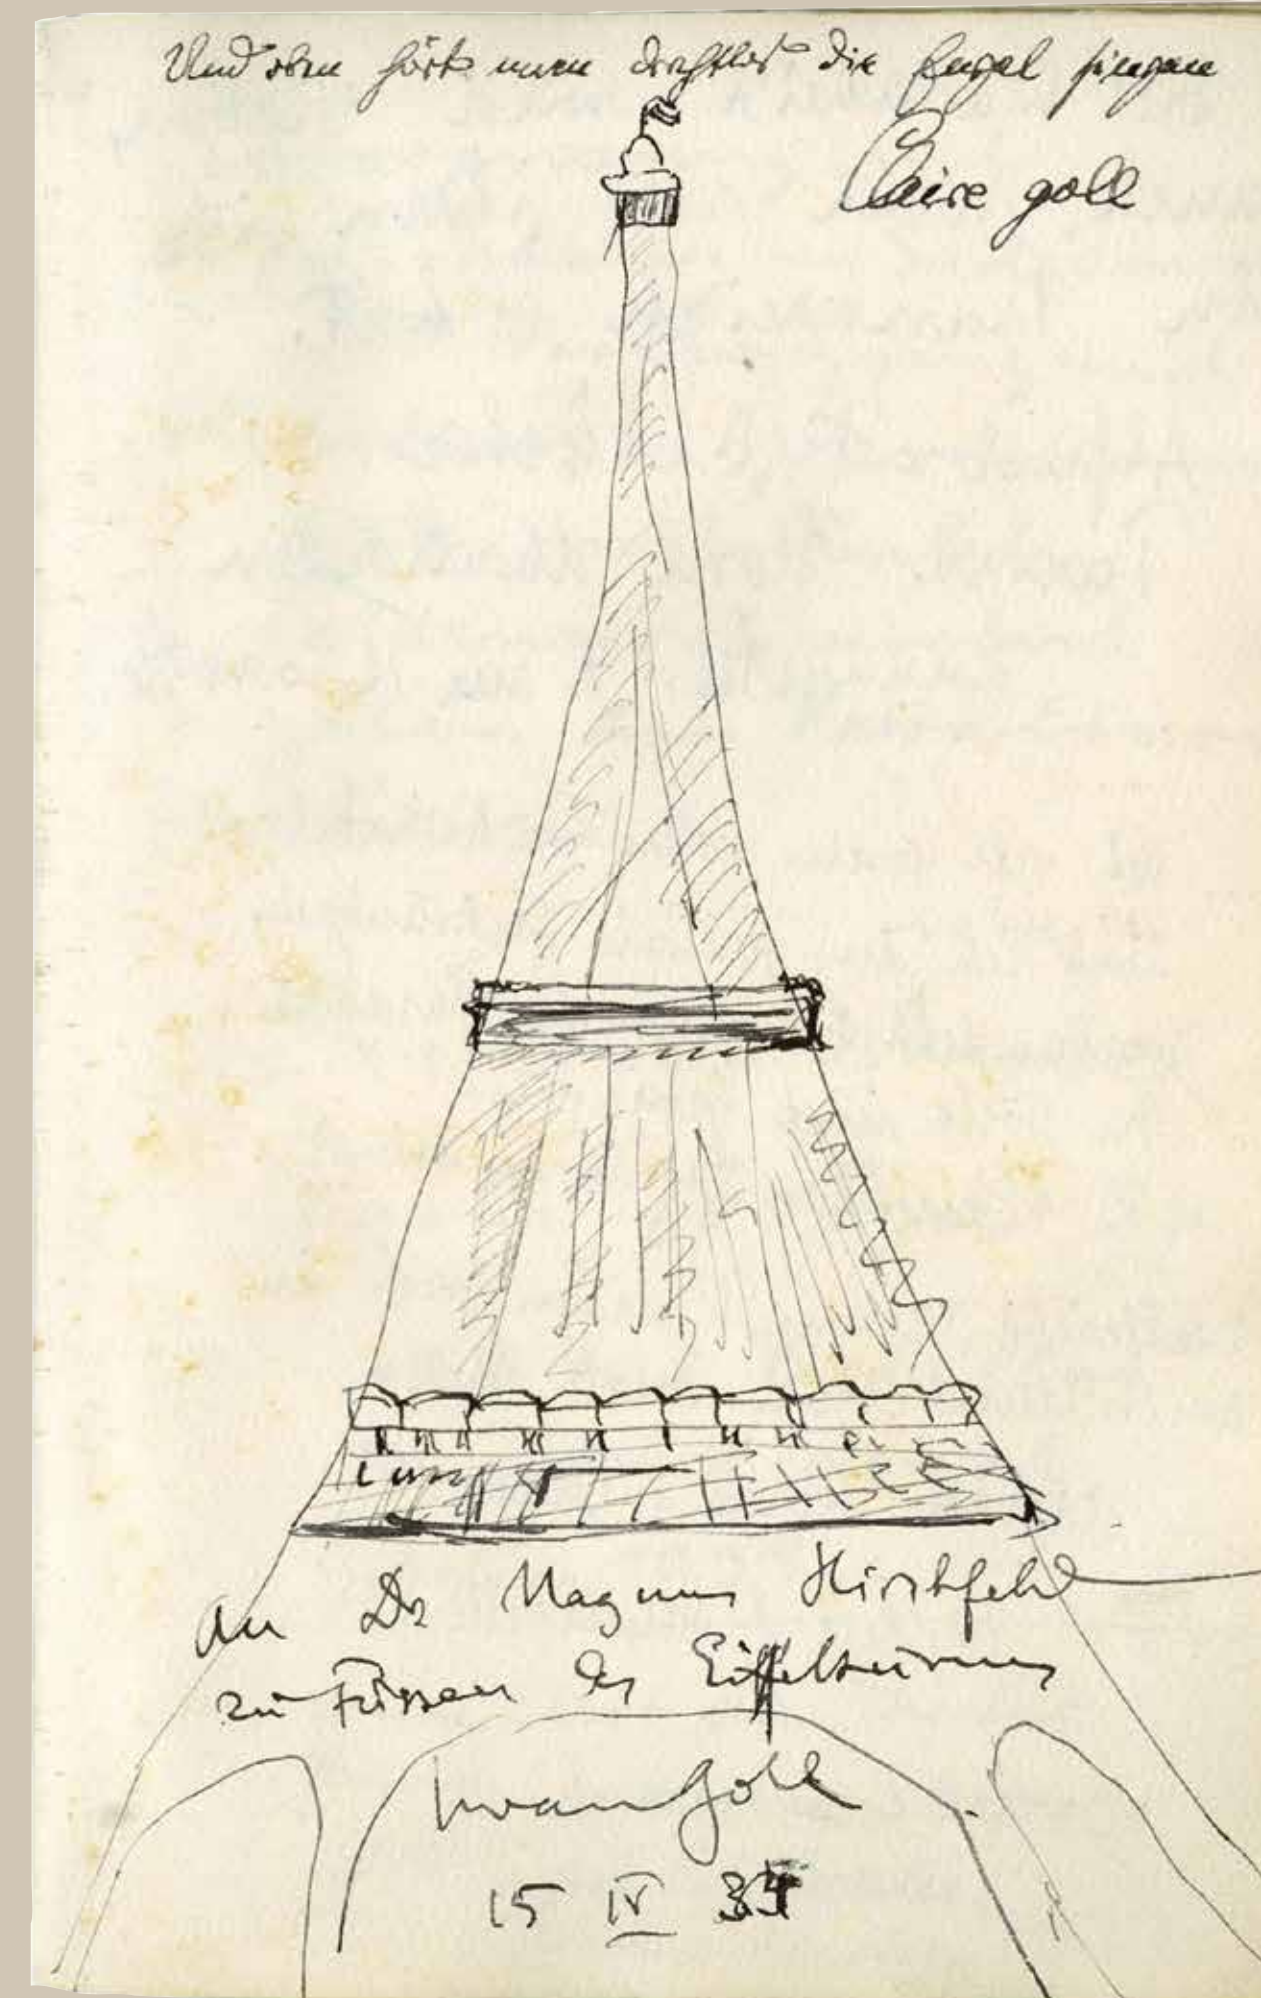 Und oben hört man drahtlos die Engel singen
Claire Goll
An Dr Magnus Hirschfeld
zu Füssen des Eiffelturmes
Iwan Goll
15 IV 34